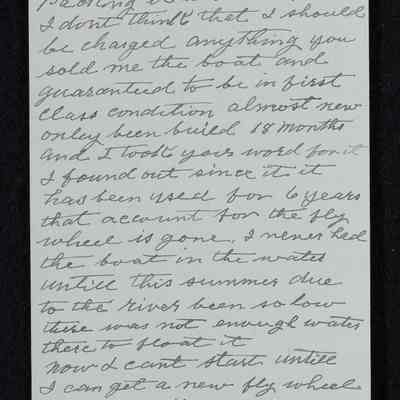 I dont think that I should
be charged anything you
sold me the boat and
guaranteed to be in first
class condition almost new
onley been build 18 months
and I took your word for it
I found out since it it
has been used for 6 years
that account for the fly
wheel is gone. I never had
the boat in the water
untill this summer due
to the river been so low
there was not enough water
there to float it
Now I cant start untill
I can get a new fly wheel